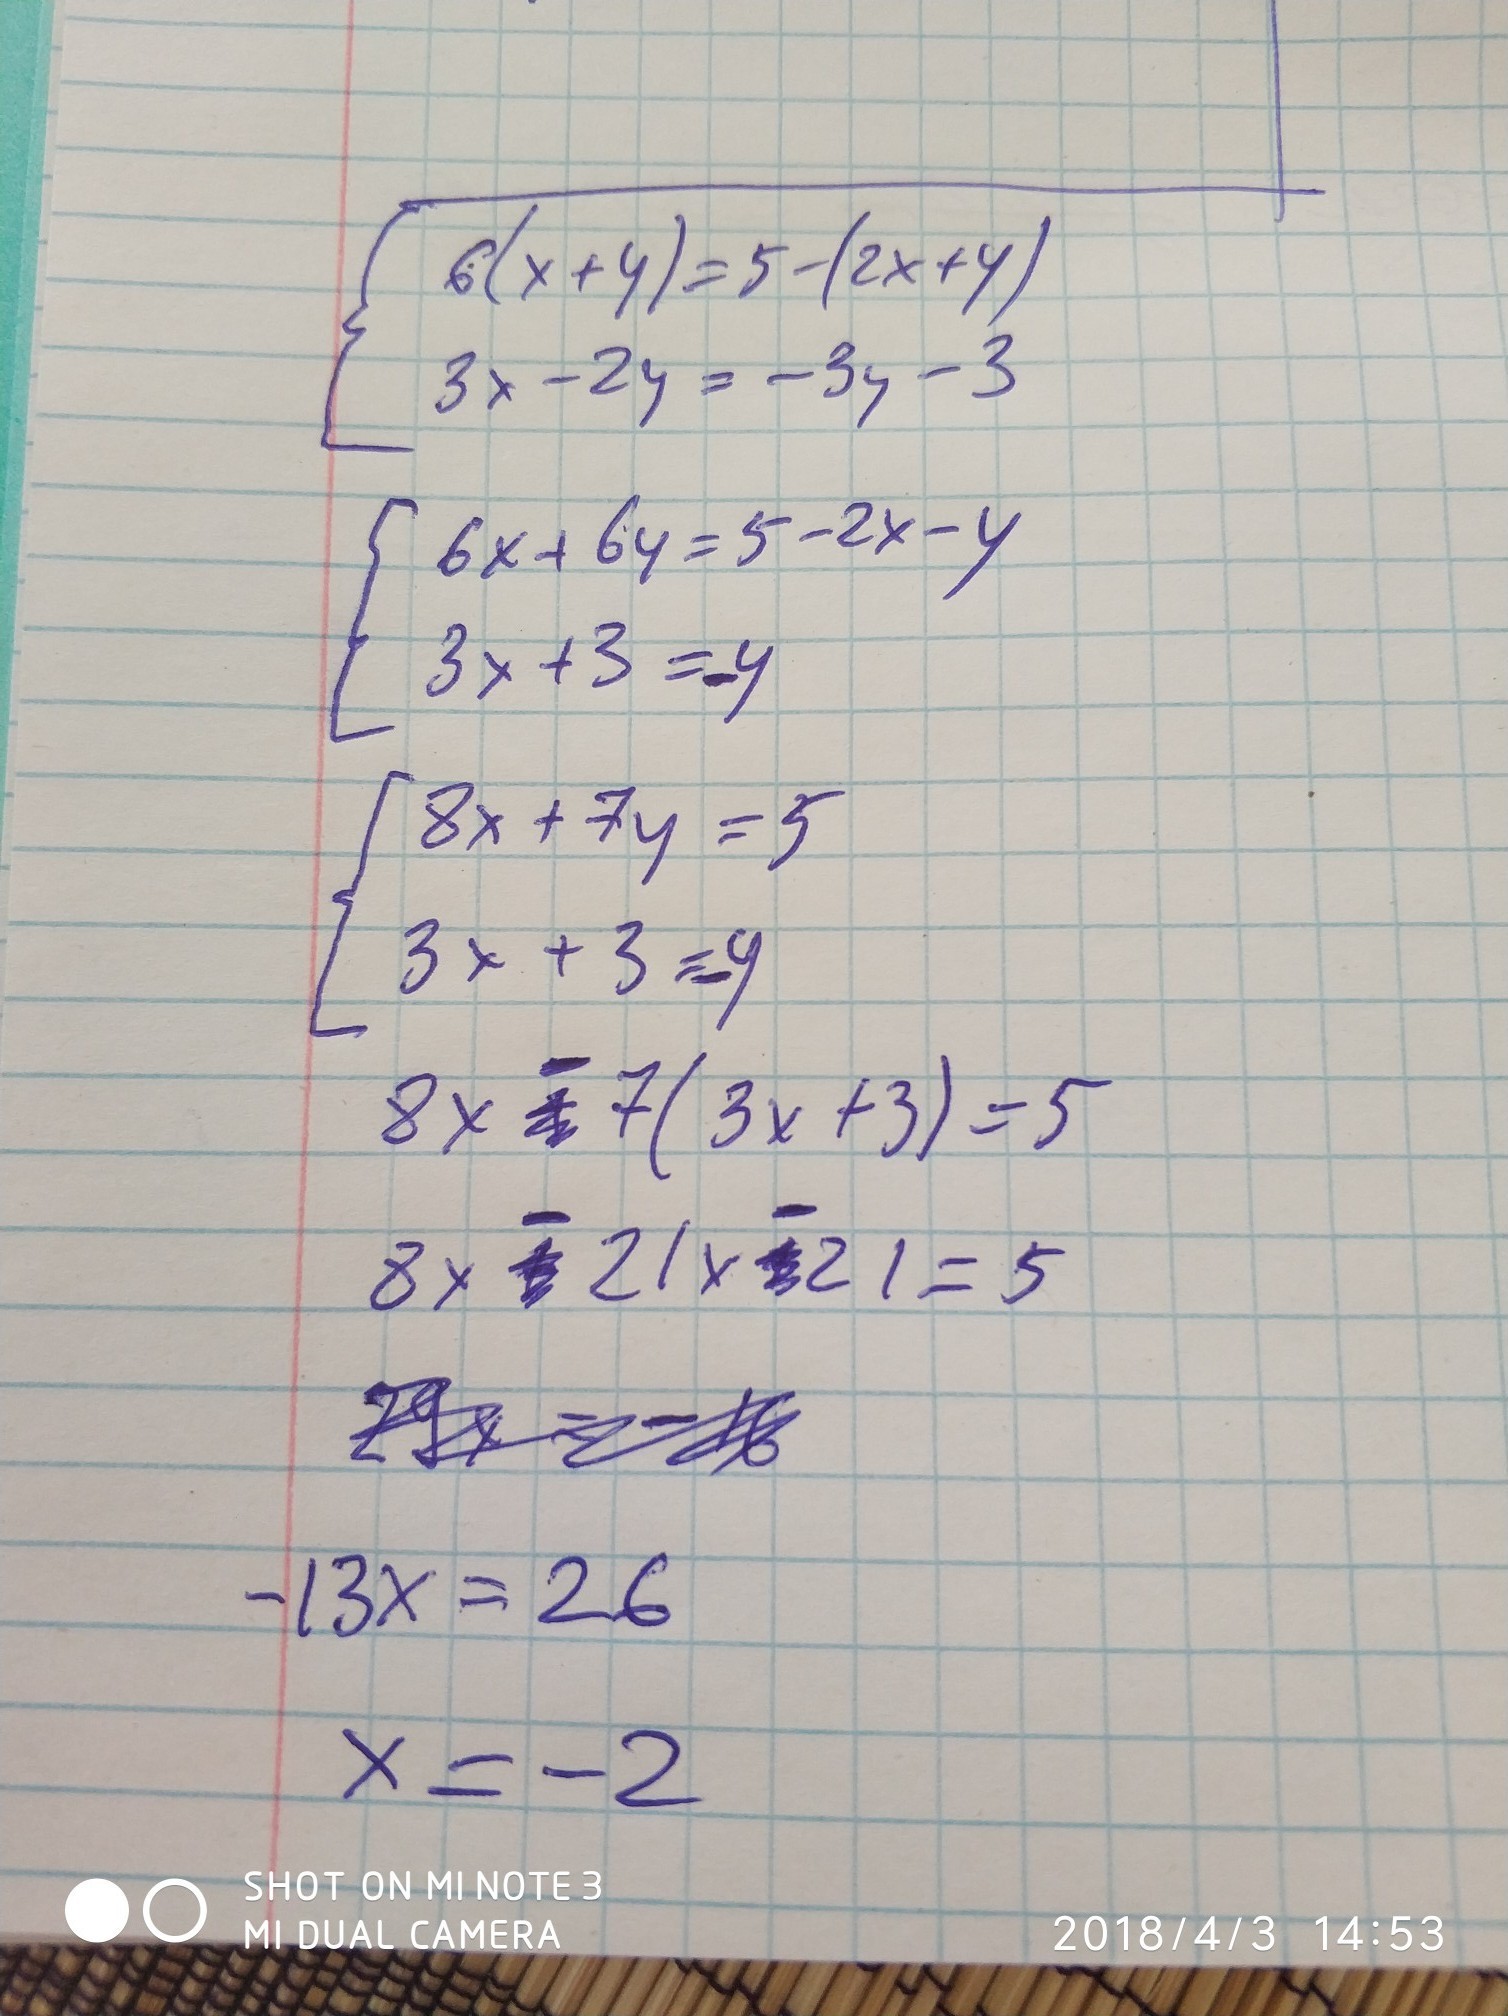 6(x+y)=5-(2x+y)
3x-2y=-3y-3
6x+6y=5-2x-y
3x+3=-y
8x+7y=5
3x+3=-y
8x-7(3x+3)=5
8x-21x-21=5
29x=-16
-13x=26
x=-2
SHOT ON MI NOTE 3
MI DUAL CAMERA
2018/4/3 14:53